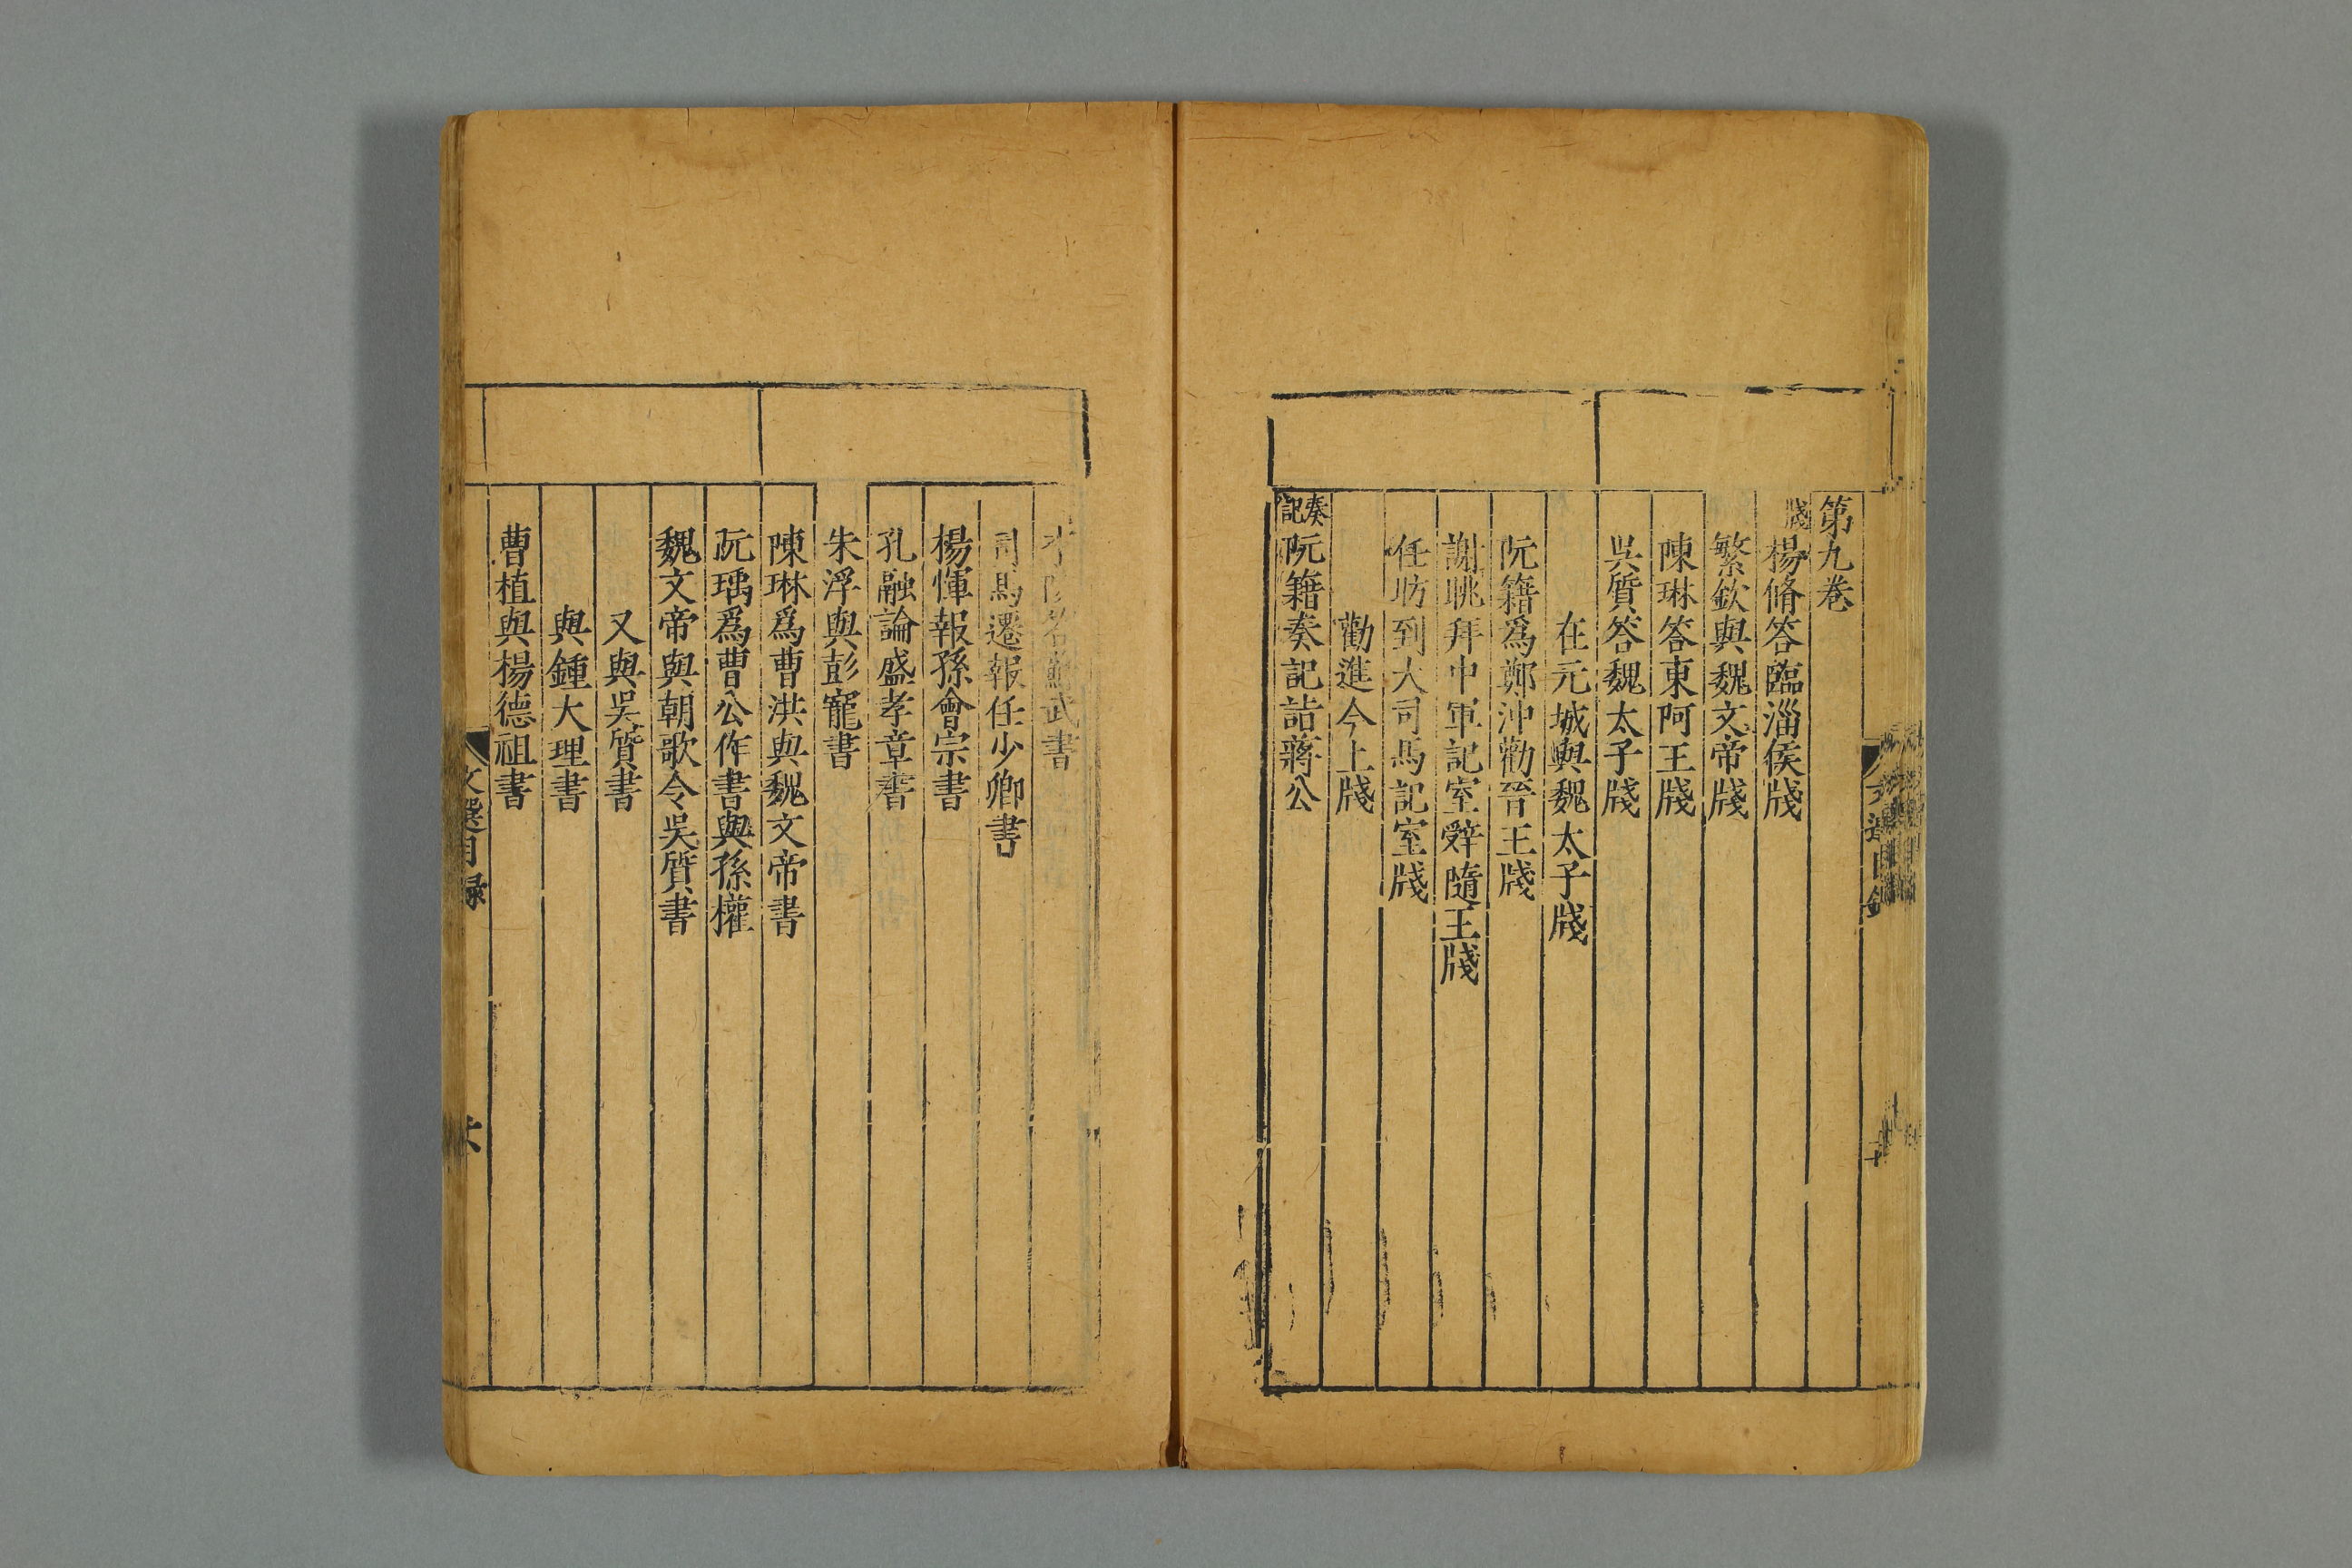 第九卷
牋 楊脩答臨淄侯牋
繁欽與魏文帝牋
陳琳答東阿王牋
吳質答魏太子牋
在元城與魏太子牋
阮籍爲鄭沖勸晉王牋
謝眺拜中軍記室辝隨王牋
任昉到大司馬記室牋
勸進今上牋
奏記 阮籍奏記詣蔣公
李陵答蘇武書
司馬遷報任少卿書
楊惲報孫會宗書
孔融論盛孝章書
朱浮與彭寵書
陳琳爲曹洪與魏文帝書
阮瑀爲曹公作書與孫權
魏文帝與朝歌令吳質書
又與吳質書
與鍾大理書
曹植與楊德祖書
文選目録